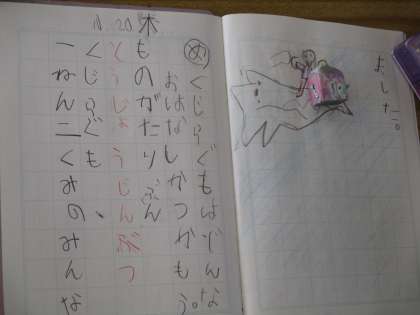 ました。
11.20 木
め
くじらぐもはどんな
おはなしかつかもう。
ものがたりぶん
とうじょうじんぶつ
くじらぐも、
一ねん二くみのみんな